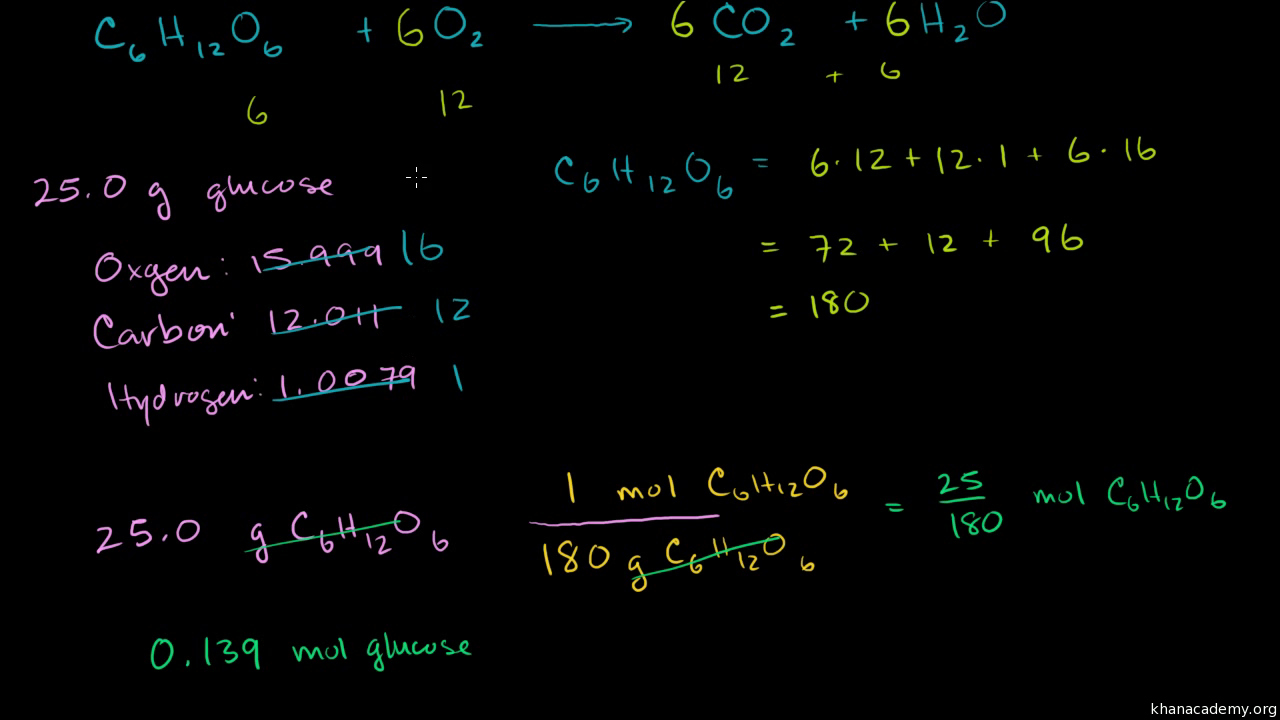 C₆H₁₂O₆ + 6O₂ ⟶ 6CO₂ + 6H₂O
6 12 12 + 6
25.0 g glucose
Oxgen: 15.999 16
Carbon: 12.011 12
Hydrogen: 1.0079 1
C₆H₁₂O₆ = 6·12 + 12·1 + 6·16
= 72 + 12 + 96
= 180
25.0 g C₆H₁₂O₆ 1 mol C₆H₁₂O₆ / 180 g C₆H₁₂O₆ = 25/180 mol C₆H₁₂O₆
0.139 mol glucose
khanacademy.org